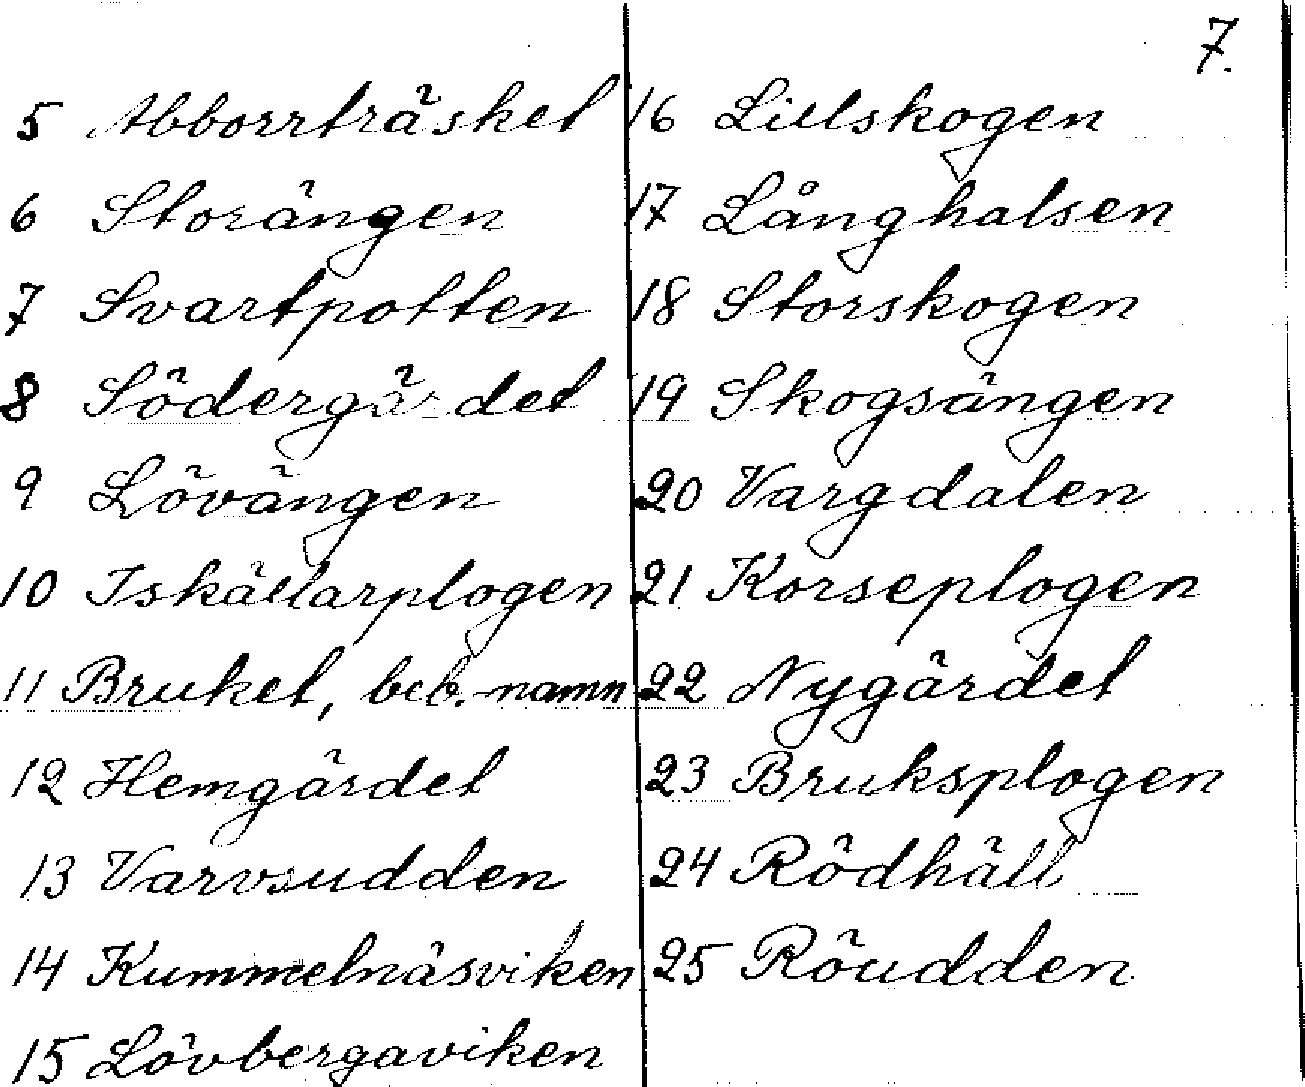 7.
5 Abborrträsket
6 Storängen
7 Svartpotten
8 Södergärdet
9 Lövängen
10 Iskällarplogen
11 Bruket, beb.-namn
12 Hemgärdet
13 Varvsudden
14 Kummelnäsviken
15 Lövbergaviken
16 Lillskogen
17 Långhalsen
18 Storskogen
19 Skogsängen
20 Vargdalen
21 Korseplogen
22 Nygärdet
23 Bruksplogen
24 Rödhäll
25 Röudden